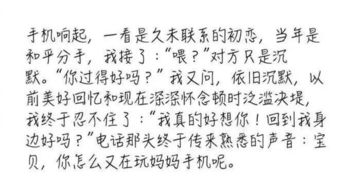 手机响起，一看是久未联系的初恋，当年是
和平分手，我接了：“喂？”对方只是沉
默。“你过得好吗？”我又问，依旧沉默，以
前美好回忆和现在深深怀念顿时泛滥决堤，
我终于忍不住了：“我真的好想你！回到我身
边好吗？”电话那头终于传来熟悉的声音：宝
贝，你怎么又在玩妈妈手机呢。